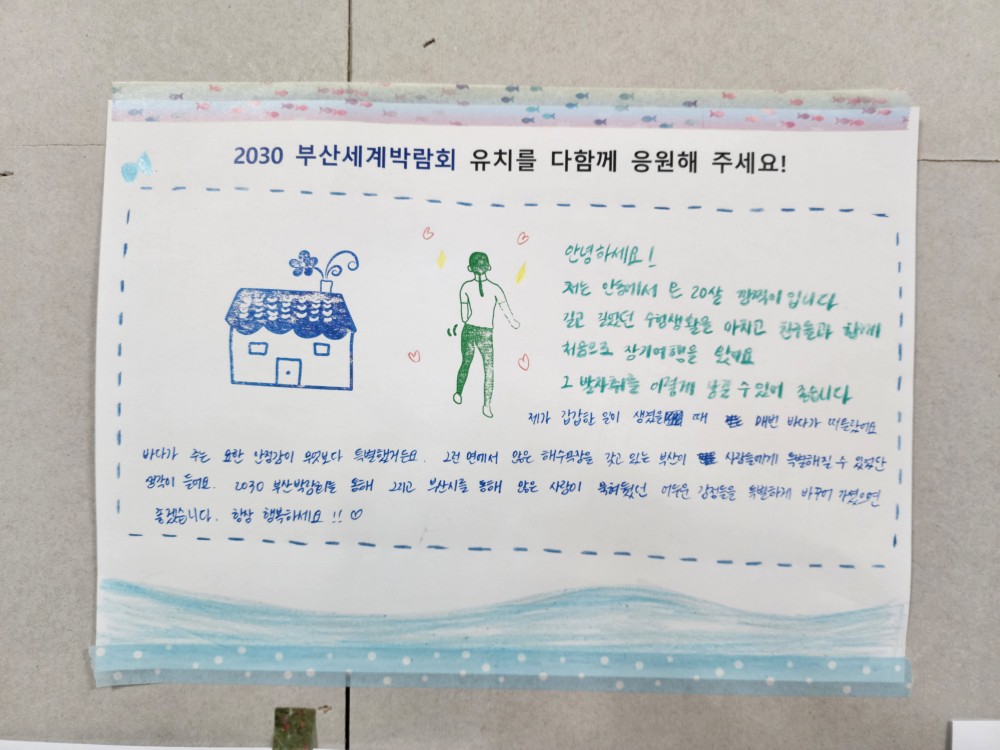 2030 부산세계박람회 유치를 다함께 응원해 주세요!
안녕하세요!
저는 안동에서 온 20살 깜찍이입니다
길고 길었던 수험생활을 마치고 친구들과 함께
처음으로 장기여행을 왔어요
그 발자취를 이렇게 남길 수 있어 좋습니다
제가 갑갑한 일이 생겼을 때 매번 바다가 떠올랐어요
바다가 주는 묘한 안정감이 무엇보다 특별했거든요. 그런 면에서 많은 해수욕장을 갖고 있는 부산이 사람들에게 특별해질 수 있겠단
생각이 들어요. 2030 부산박람회를 통해 그리고 부산시를 통해 많은 사람이 묵혀뒀던 어두운 감정들을 특별하게 바꾸어 가셨으면
좋겠습니다. 항상 행복하세요 !! ♡